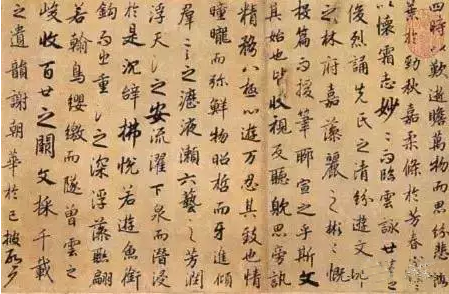 四時以歎逝瞻萬物而思紛悲落
葉於勁秋嘉柔條於芳春
以懷霜志妙〻而臨雲詠世之
俊烈誦先民之清紛遊文
之林府嘉藻麗之彬〻慨
投篇而援筆聊宣之乎斯文
其始也皆收視反聽耽思旁訊
精務八極心遊万忍其致也情
曈曨而弥鮮物昭晢而互進傾
羣言之瀝液瀨六藝之芳潤
浮天淵之安流濯下泉而潛浸
於是沉辭拂悅若遊魚銜
鈎而出重淵之深浮藻聯翩
若翰鳥纓繳而墜曾雲之
峻收百世之闕文採千載
之遺韻謝朝華於已披啟夕